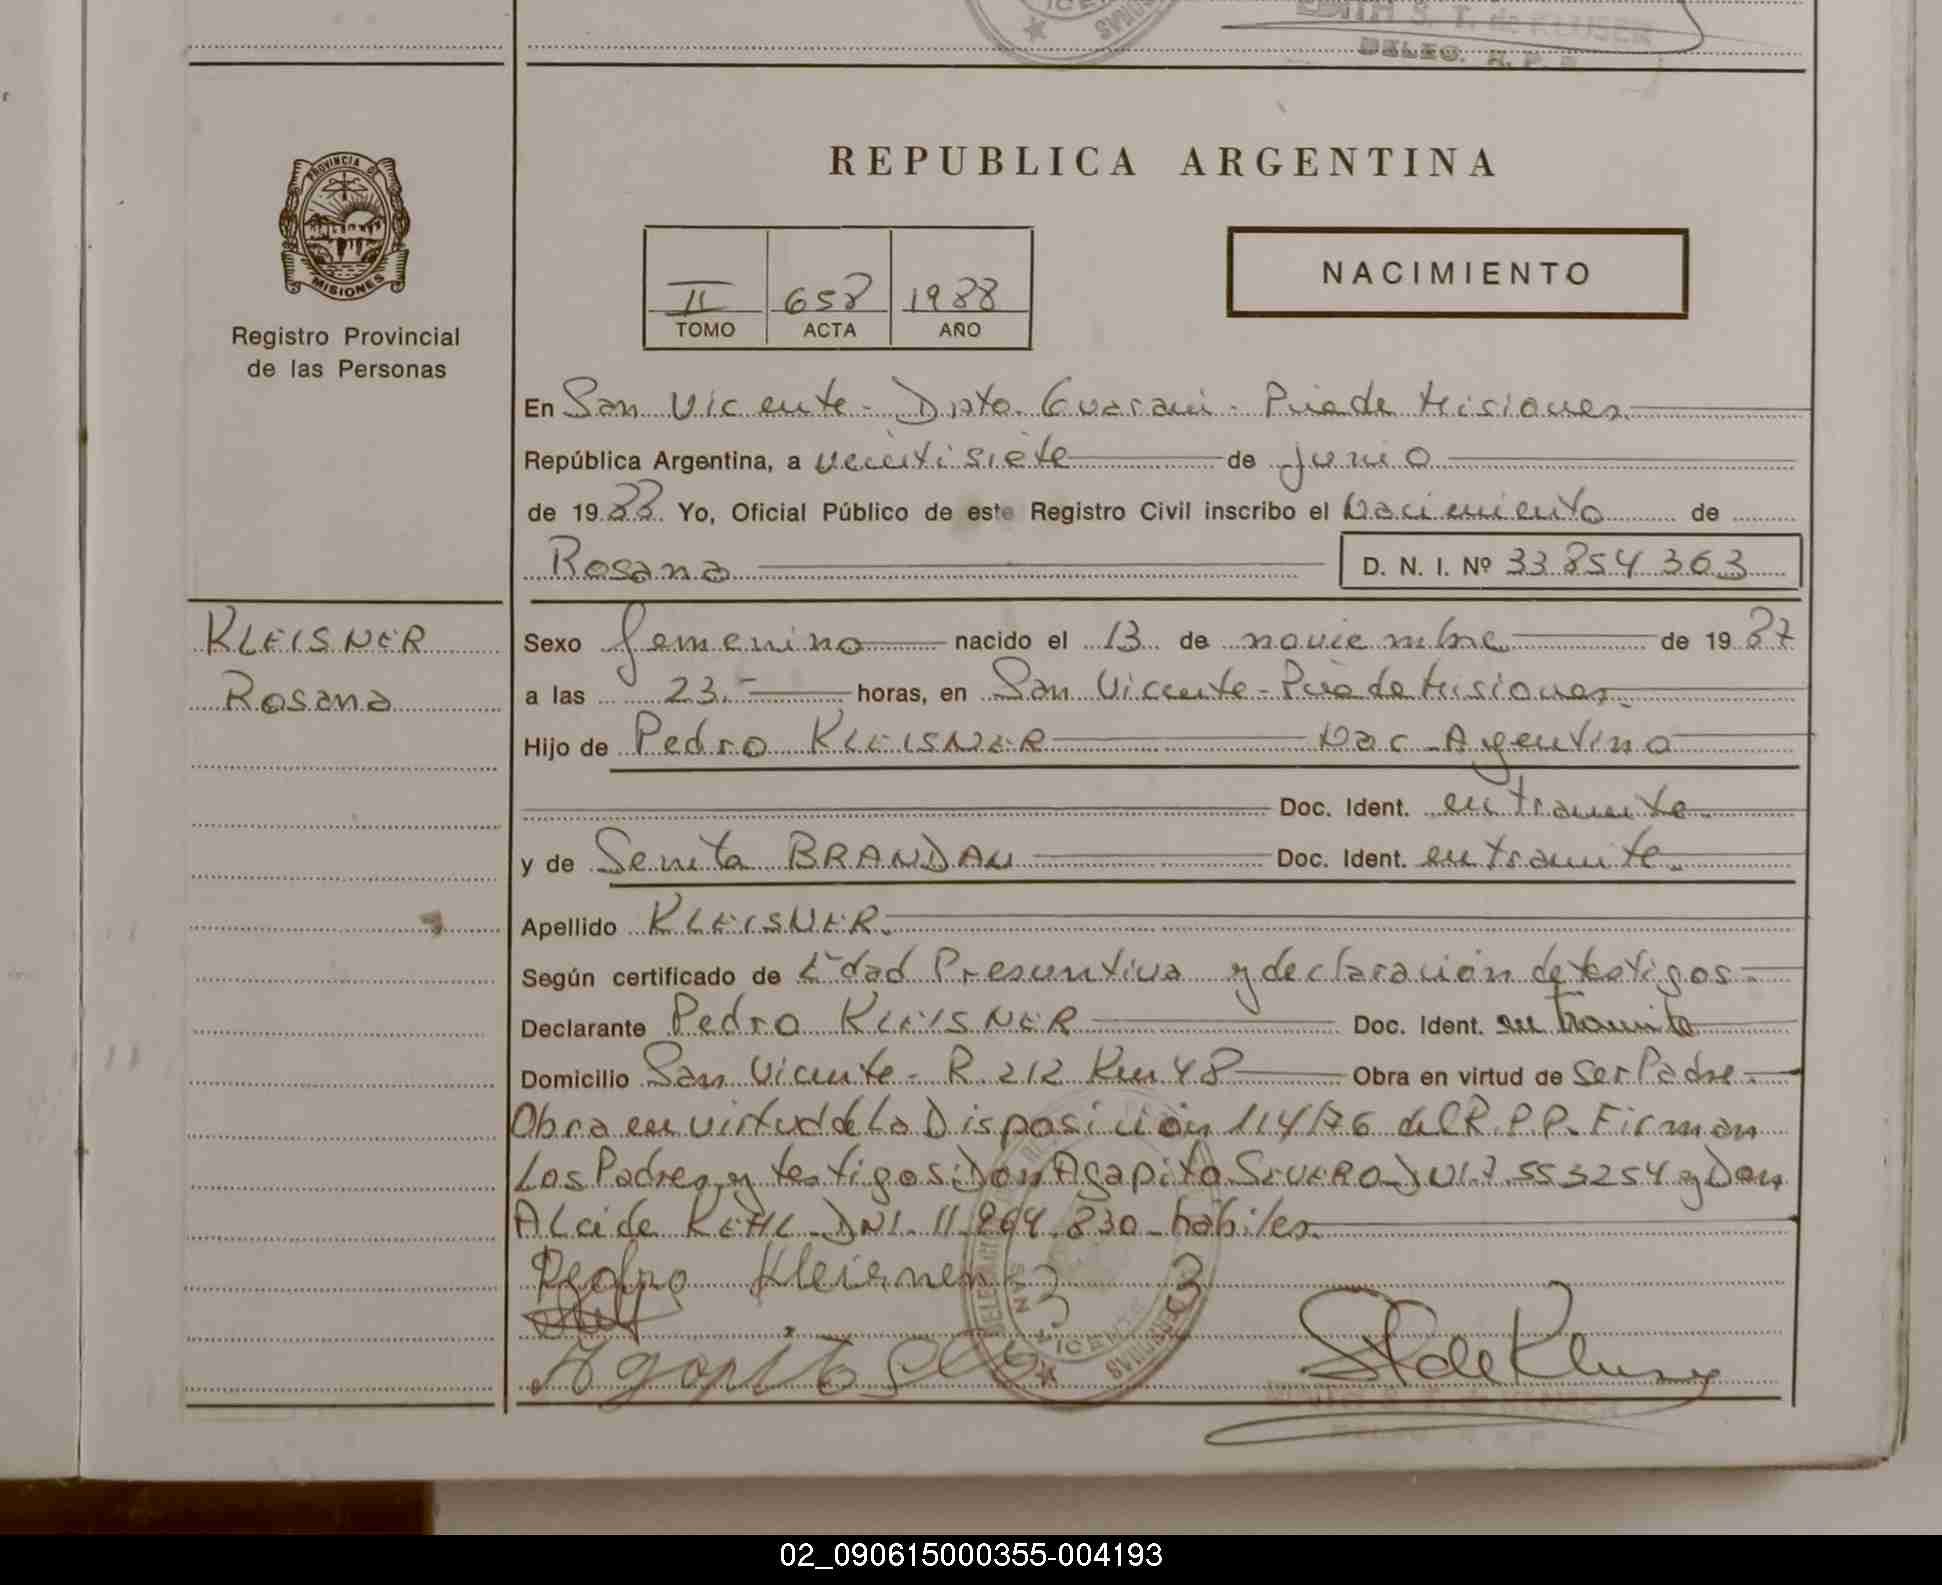 EDITH S. T. de KLUSER
DELEG. R. P. P.
PROVINCIA DE
MISIONES
Registro Provincial
de las Personas
REPUBLICA ARGENTINA
II 658 1988
TOMO ACTA AÑO
NACIMIENTO
En San Vicente - Dpto. Guarani - Pcia de Misiones.
República Argentina, a veintisiete de junio
de 1988. Yo, Oficial Público de este Registro Civil inscribo el Nacimiento de
Rosana D. N. I. Nº 33 854 363
KLEISNER
Rosana
Sexo femenino nacido el 13 de noviembre de 1987
a las 23.- horas, en San Vicente - Pcia de Misiones.
Hijo de Pedro KLEISNER Nac. Argentino
Doc. Ident. en tramite.
y de Senita BRANDAN Doc. Ident. en tramite.
Apellido KLEISNER.
Según certificado de Edad Presuntiva y declaración de testigos.
Declarante Pedro KLEISNER Doc. Ident. en tramite
Domicilio San Vicente - R. 212 Km 48 Obra en virtud de ser Padre.
Obra en virtud de la Disposición 114/76 del R.P.P. Firman
Los Padres y testigos: Don Agapito SEVERO DNI 7.553254 y Don
Alcide KEHL DNI. 11.864.830 - habiles.
Pedro Kleisner
Agapito
ST de Kluser
02_090615000355-004193